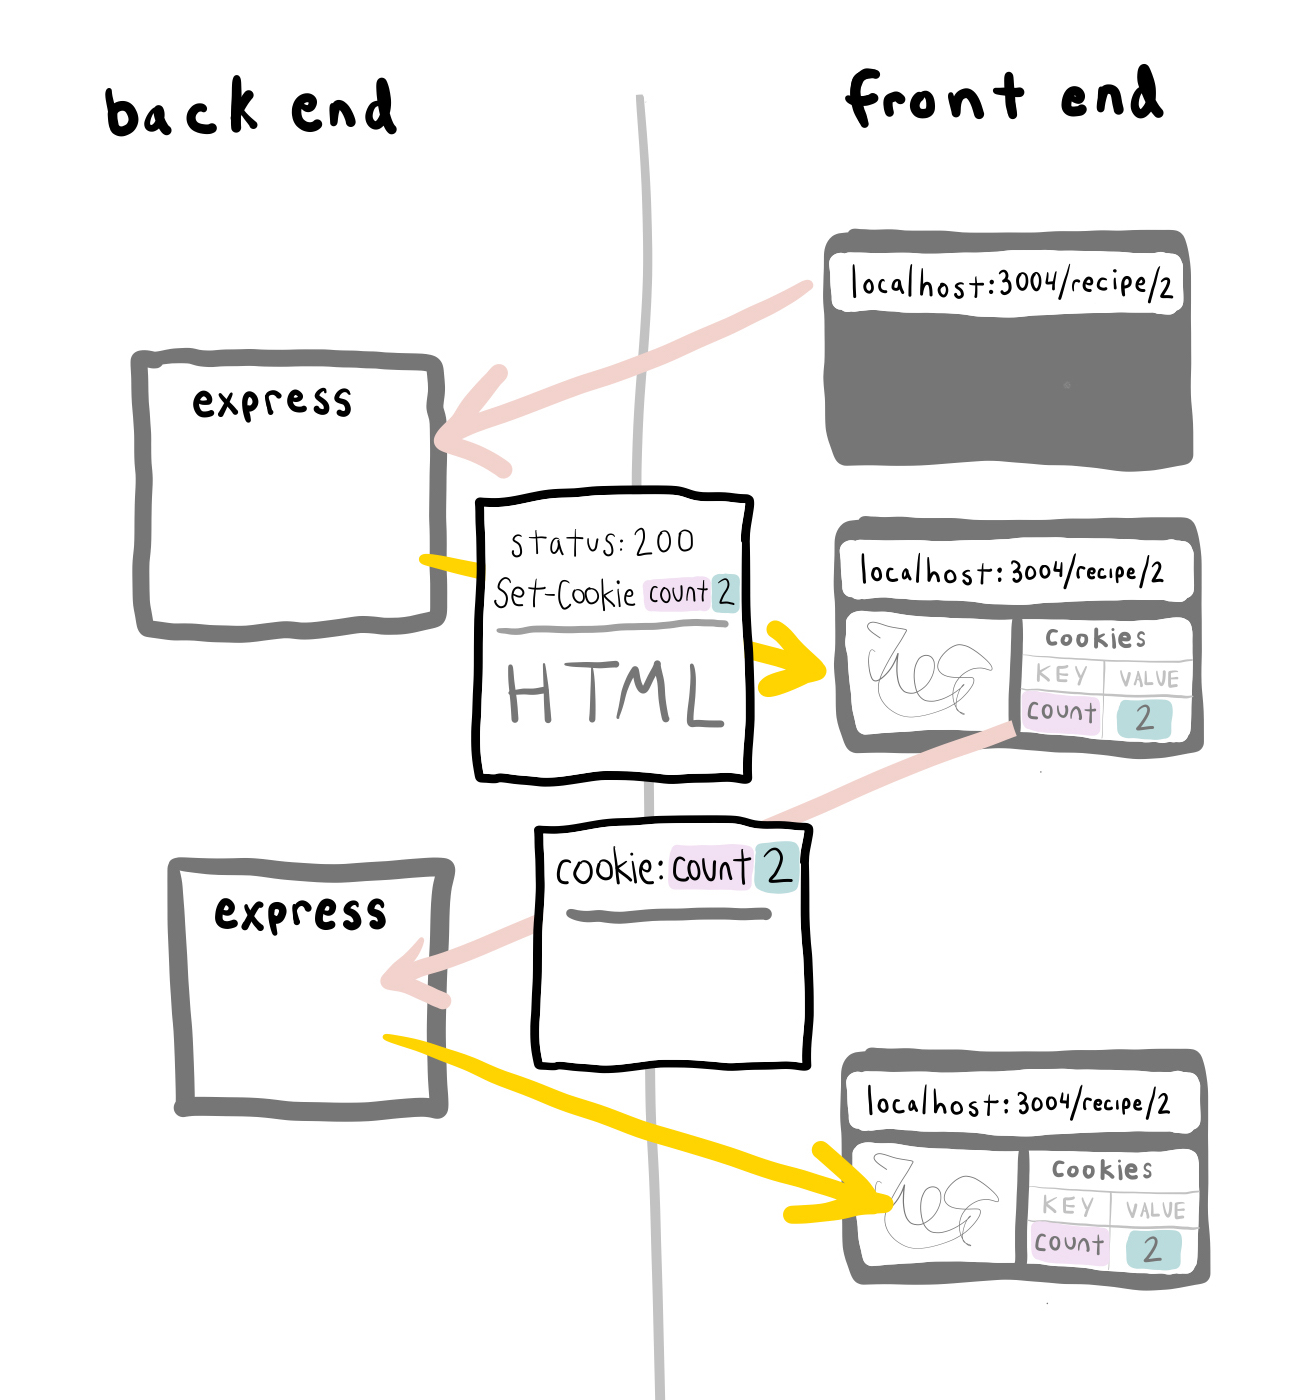 back end
front end
localhost:3004/recipe/2
express
status: 200
Set-Cookie count 2
HTML
localhost: 3004/recipe/2
Cookies
KEY VALUE
count 2
cookie: count 2
express
localhost: 3004/recipe/2
Cookies
KEY VALUE
count 2